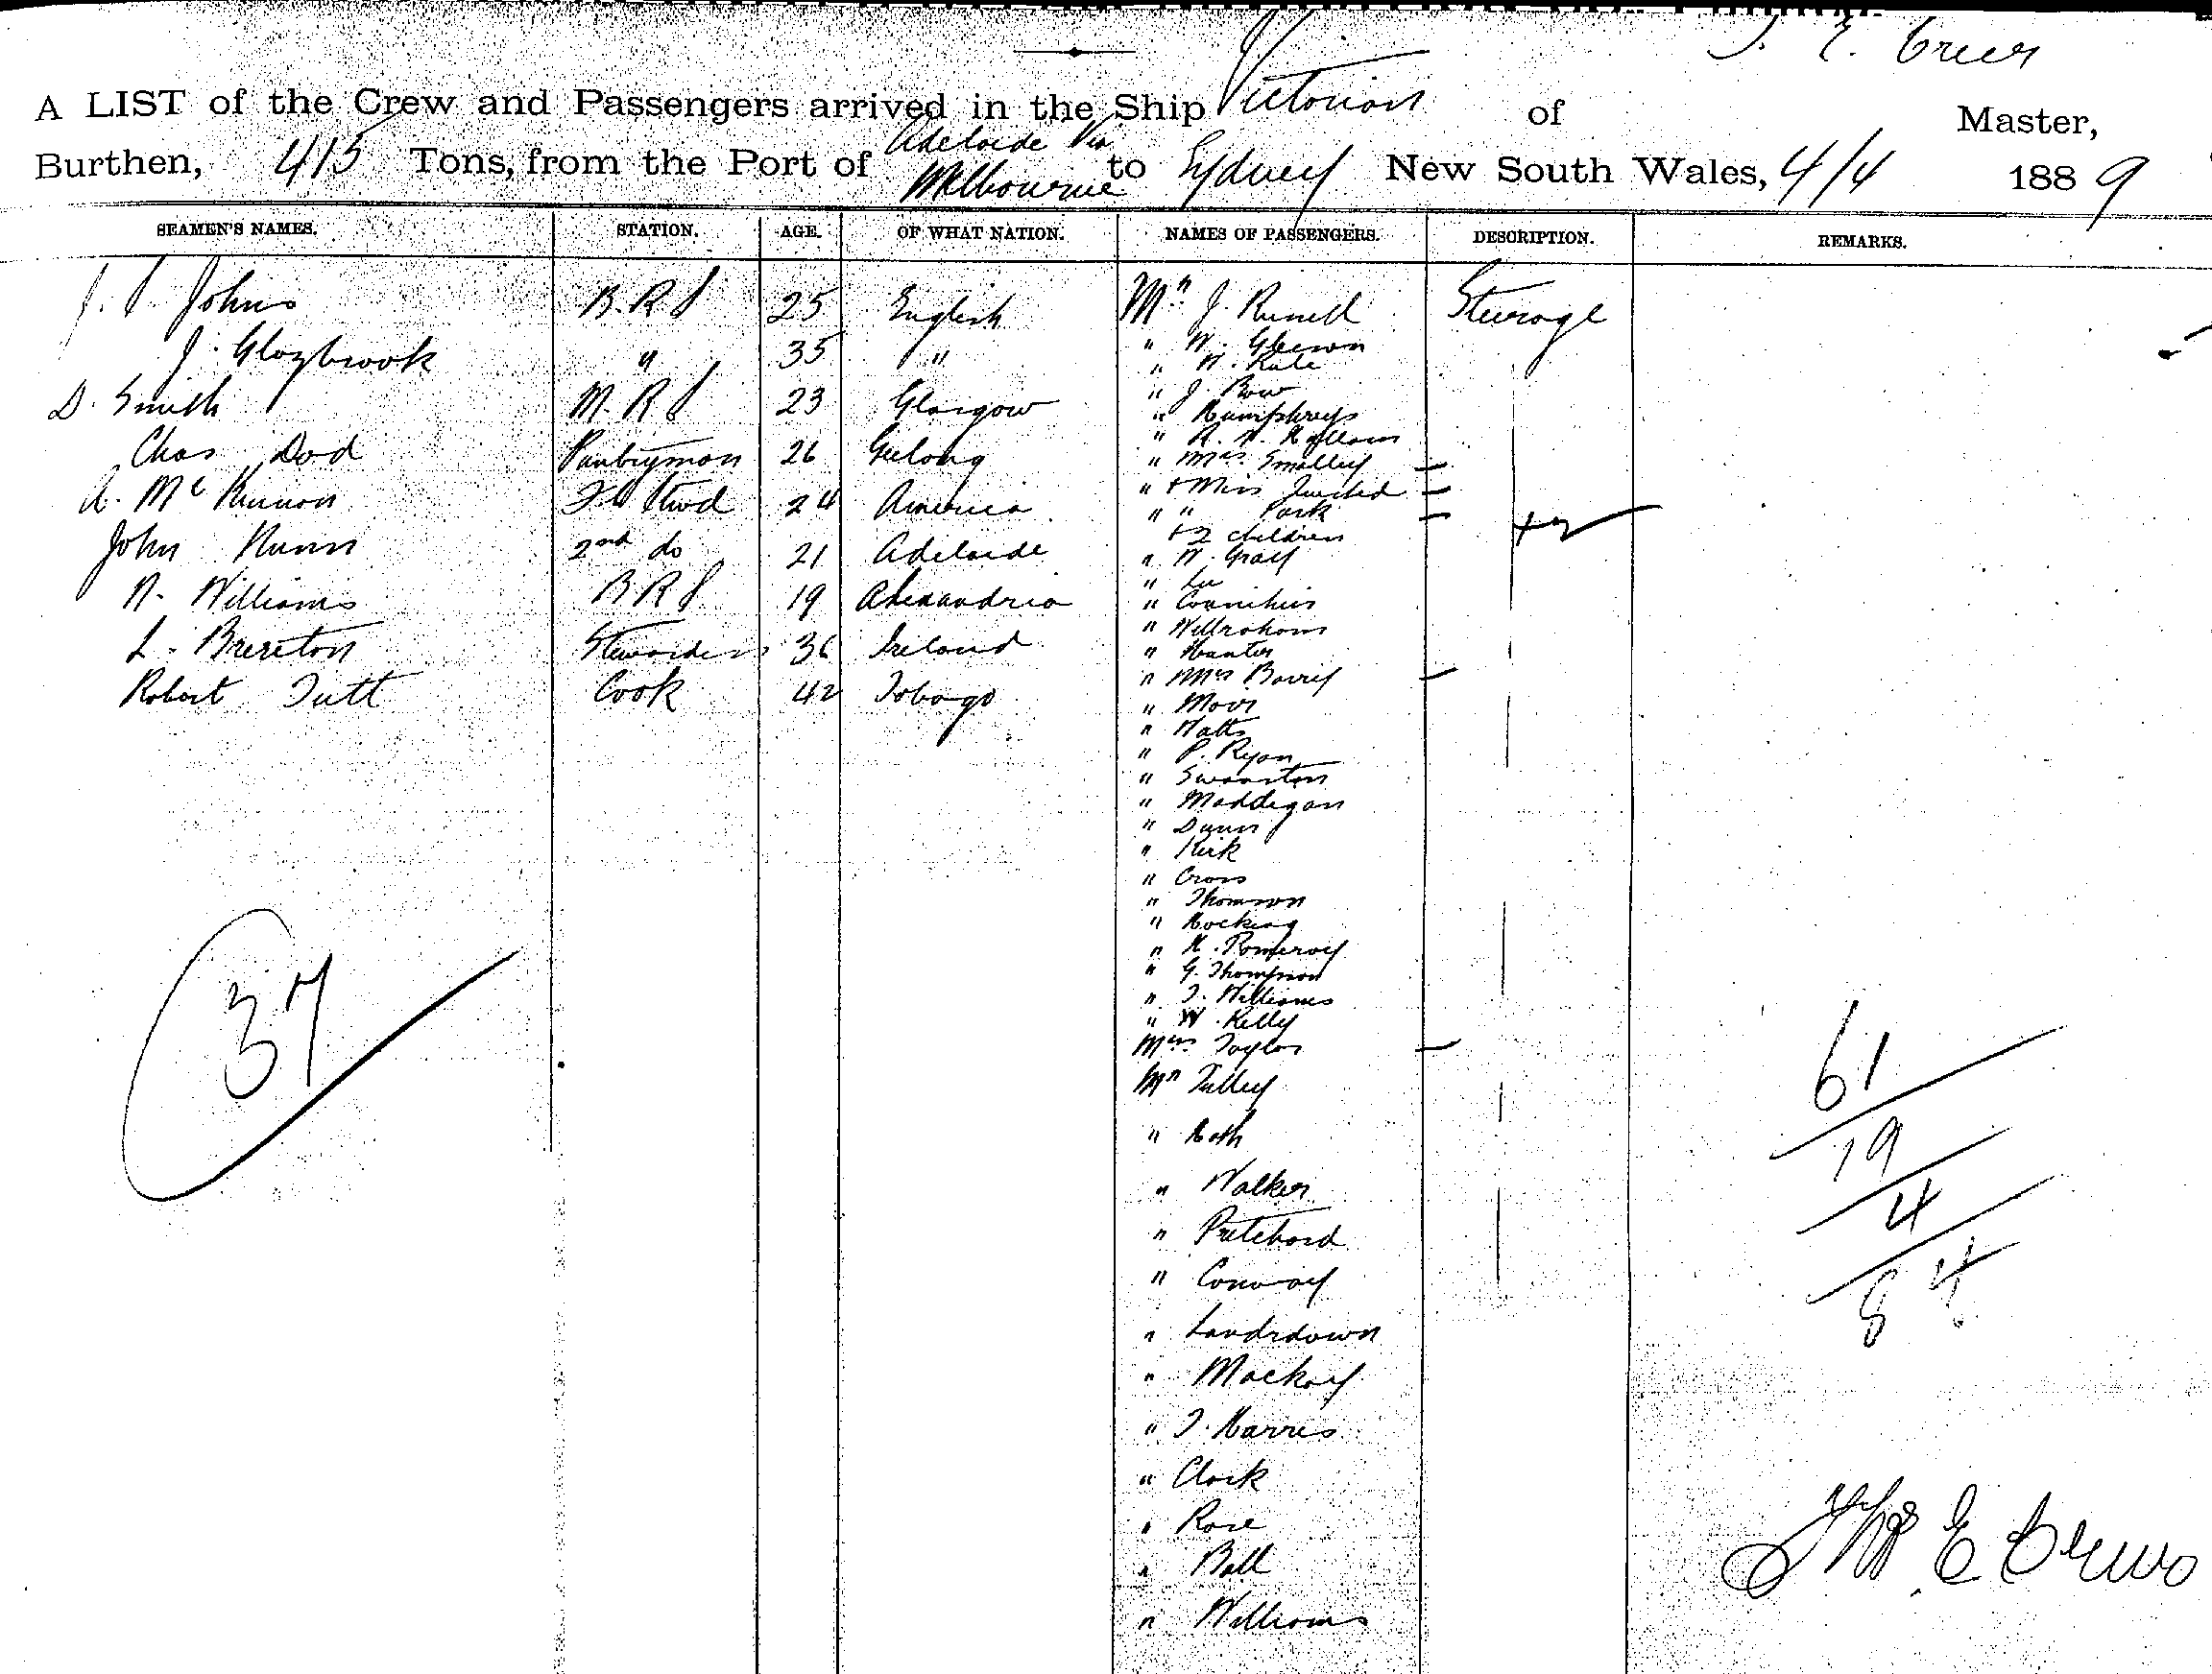 T. E. Creer
A LIST of the Crew and Passengers arrived in the Ship Victorian of Master,
Burthen, 415 Tons, from the Port of Adelaide Via Melbourne to Sydney New South Wales, 4/4 1889
SEAMEN'S NAMES. STATION. AGE. OF WHAT NATION. NAMES OF PASSENGERS. DESCRIPTION. REMARKS.
Johns B.R.S 25 English
J. Glazbrook " 35 "
D. Smith M.R.S 23 Glasgow
Chas Dod Pantryman 26 Geelong
A. McKinnon 24 America
John Nunn 2nd do 21 Adelaide
W. Williams B.R.S 19 Alexandria
L. Brereton Stewardess 36 Ireland
Robert Tutt Cook 42 Tobago
37
Mr J. Russell Steerage
" W. Gleeson
" J. Row
" Humphreys
" Mrs. Smalley
" + Miss
" " Park
+ 2 children +2
" W. Gray
" Lee
" Hunter
" Mrs Barry
" Moir
" Watts
" P. Ryan
" Swanston
" Maddigan
" Dunn
" Kirk
" Cross
" Thomson
" Hocking
" H. Pomeroy
" G. Thompson
" T. Williams
" W. Kelly
Mrs. Taylor
Mr Tulley
" Walker
" Pritchard
" Conway
" Landsdown
" Mackay
" T. Harris
" Clark
" Rose
" Ball
" Williams
61
19
4
84
Thos E Creer